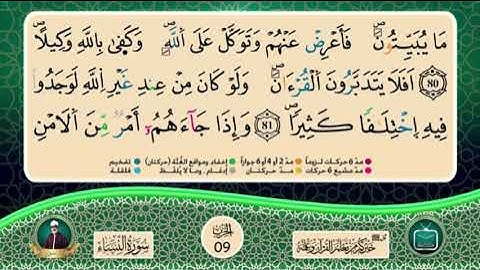 مَا يُبَيِّتُونَۖ فَأَعْرِضْ عَنْهُمْ وَتَوَكَّلْ عَلَى اللَّهِۖ وَكَفَىٰ بِاللَّهِ وَكِيلًاۖ
80 أَفَلَا يَتَدَبَّرُونَ الْقُرْءَانَۖ وَلَوْ كَانَ مِنْ عِندِ غَيْرِ اللَّهِ لَوَجَدُوا
فِيهِ اِخْتِلَٰفًا كَثِيرًاۖ 81 وَإِذَا جَآءَهُمُۥٓ أَمْرٌ مِّنَ الَامْنِ
مدّ 6 حركات لزوماً مدّ 2 أو 4 أو 6 جوازاً إخفاء، ومواقع الغُنَّة (حركتان) تفخيم
مدّ مشبع 6 حركات مدّ حركتـان إدغام، وما لا يُلفَظ قلقلة
سورة النساء
الحزب
09
خيركم من تعلم القرآن وعلمه